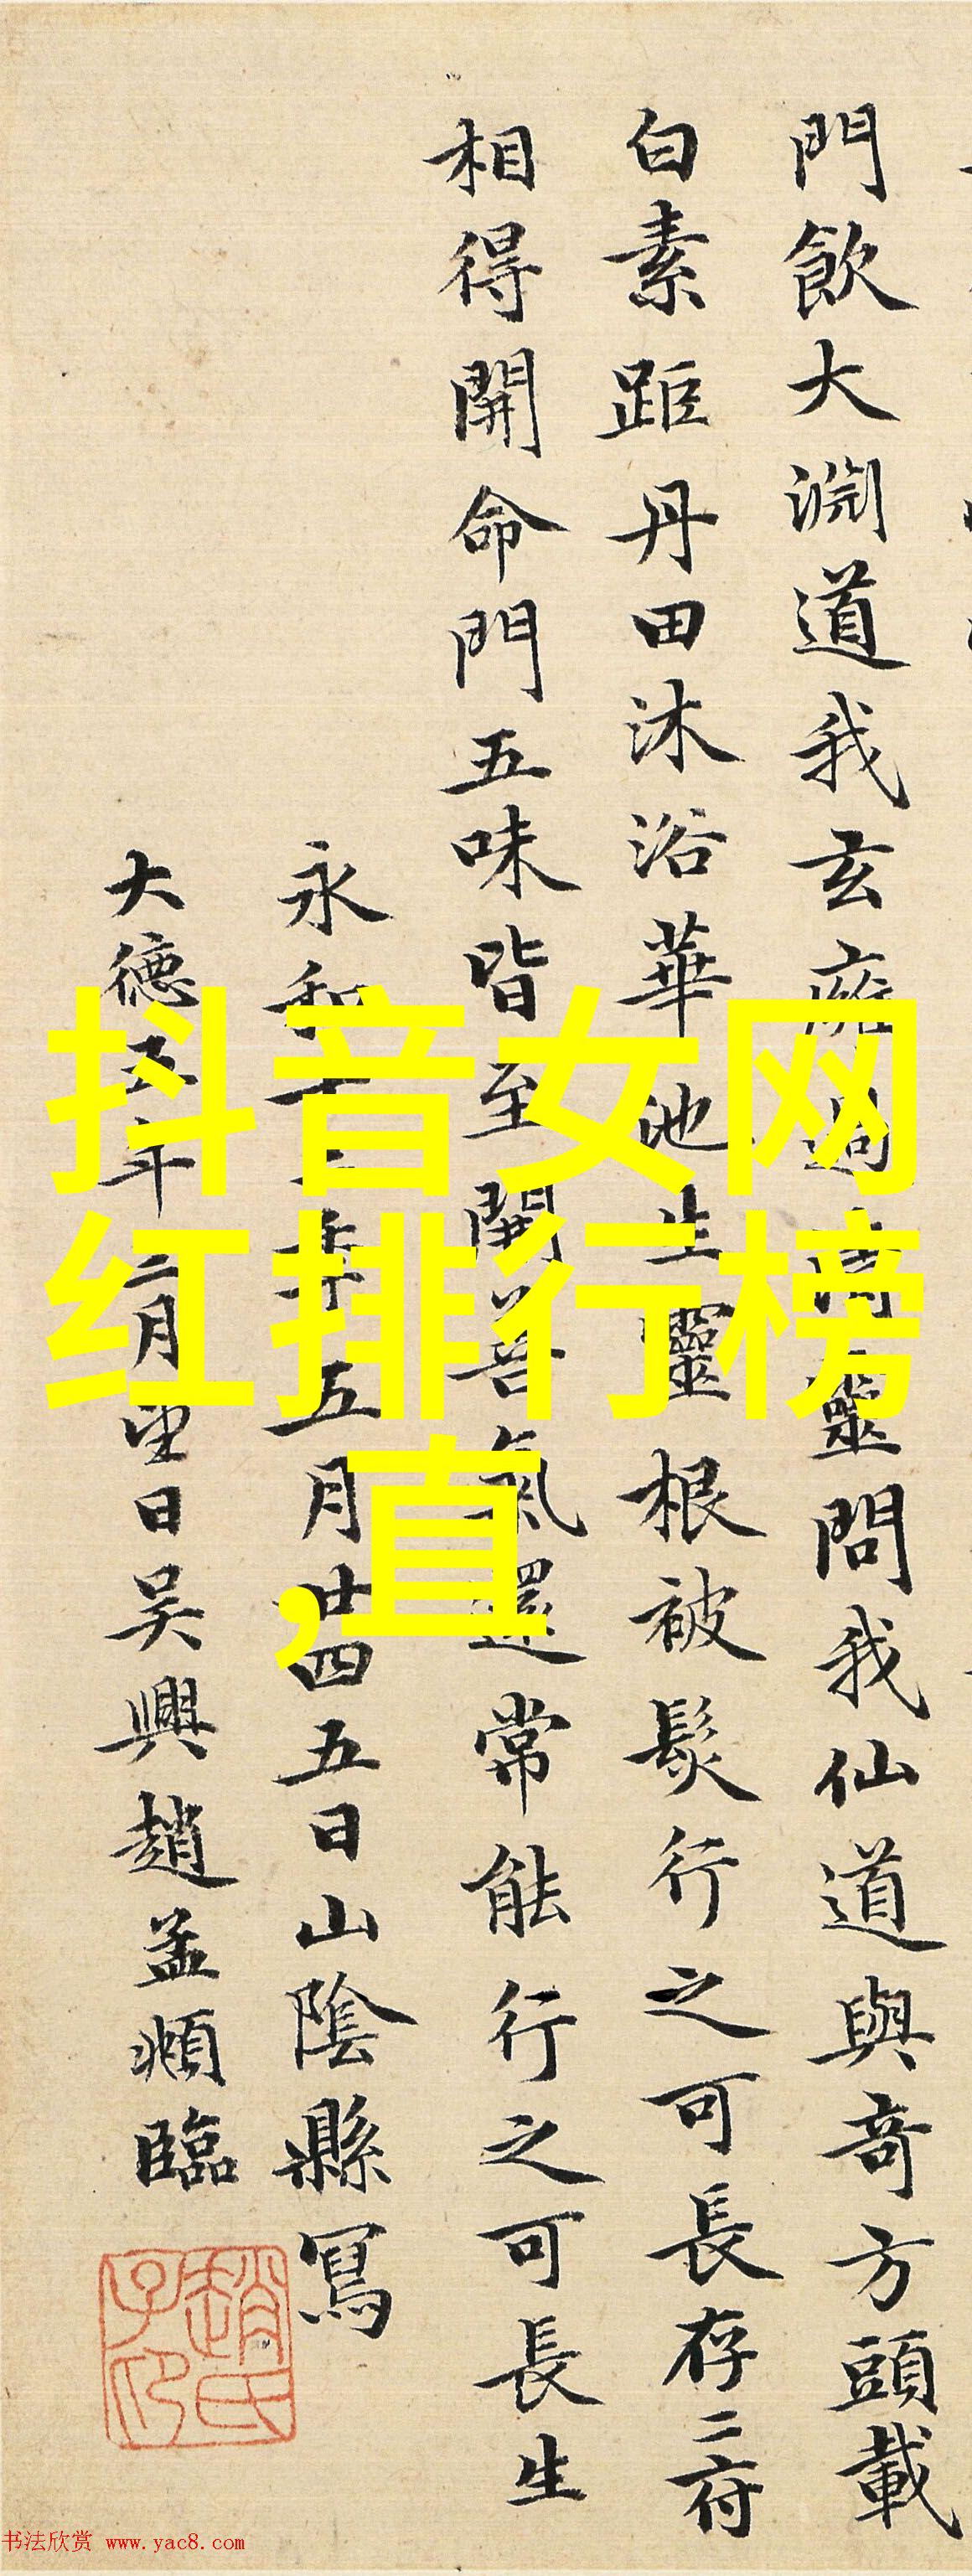 門飲大淵道我玄廱過清靈問我仙道與奇方頭載
白素距丹田沐浴華池生靈根被髮行之可長存二府
相得開命門五味皆至開善氣還常能行之可長生
永和十二年五月廿四五日山陰縣寫
大德五年二月望日吳興趙孟頫臨
趙氏子印
抖音女网
红排行榜
,直
书法欣赏 www.yac8.com